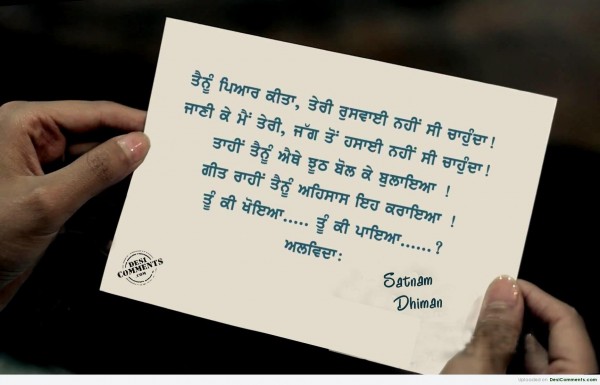 ਤੈਨੂੰ ਪਿਆਰ ਕੀਤਾ, ਤੇਰੀ ਰੁਸਵਾਈ ਨਹੀਂ ਸੀ ਚਾਹੁੰਦਾ!
ਜਾਣੀ ਕੇ ਮੈਂ ਤੇਰੀ, ਜੱਗ ਤੋਂ ਹਸਾਈ ਨਹੀਂ ਸੀ ਚਾਹੁੰਦਾ!
ਤਾਹੀਂ ਤੈਨੂੰ ਐਥੇ ਝੂਠ ਬੋਲ ਕੇ ਬੁਲਾਇਆ !
ਗੀਤ ਰਾਹੀਂ ਤੈਨੂੰ ਅਹਿਸਾਸ ਇਹ ਕਰਾਇਆ !
ਤੂੰ ਕੀ ਖੋਇਆ..... ਤੂੰ ਕੀ ਪਾਇਆ......?
ਅਲਵਿਦਾ:
Satnam
Dhiman
DESI
COMMENTS
.COM
Uploaded on - DesiComments.com